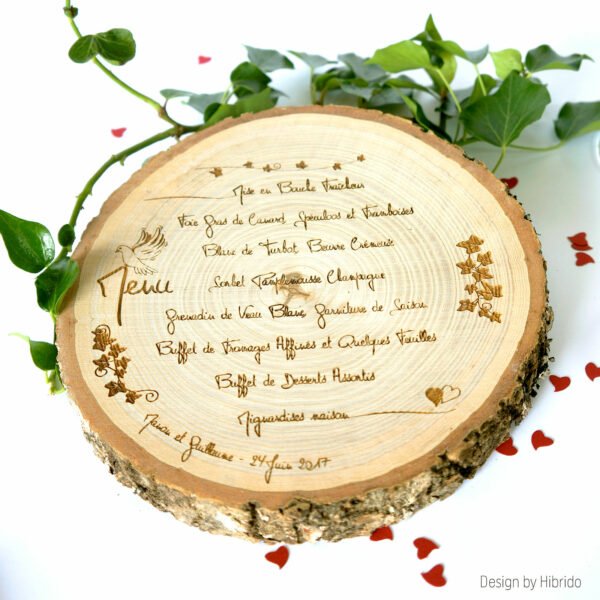 Mise en Bouche Fraîcheur
Foie Gras de Canard Spéculoos et Framboises
Blanc de Turbot Beurre Crémeux
Menu
Sorbet Pamplemousse Champagne
Grenadin de Veau Blanc Garniture de Saison
Buffet de Fromages Affinés et Quelques Feuilles
Buffet de Desserts Assortis
Mignardises maison
et Guillaume - 24 Juin 2017
Design by Hibrido